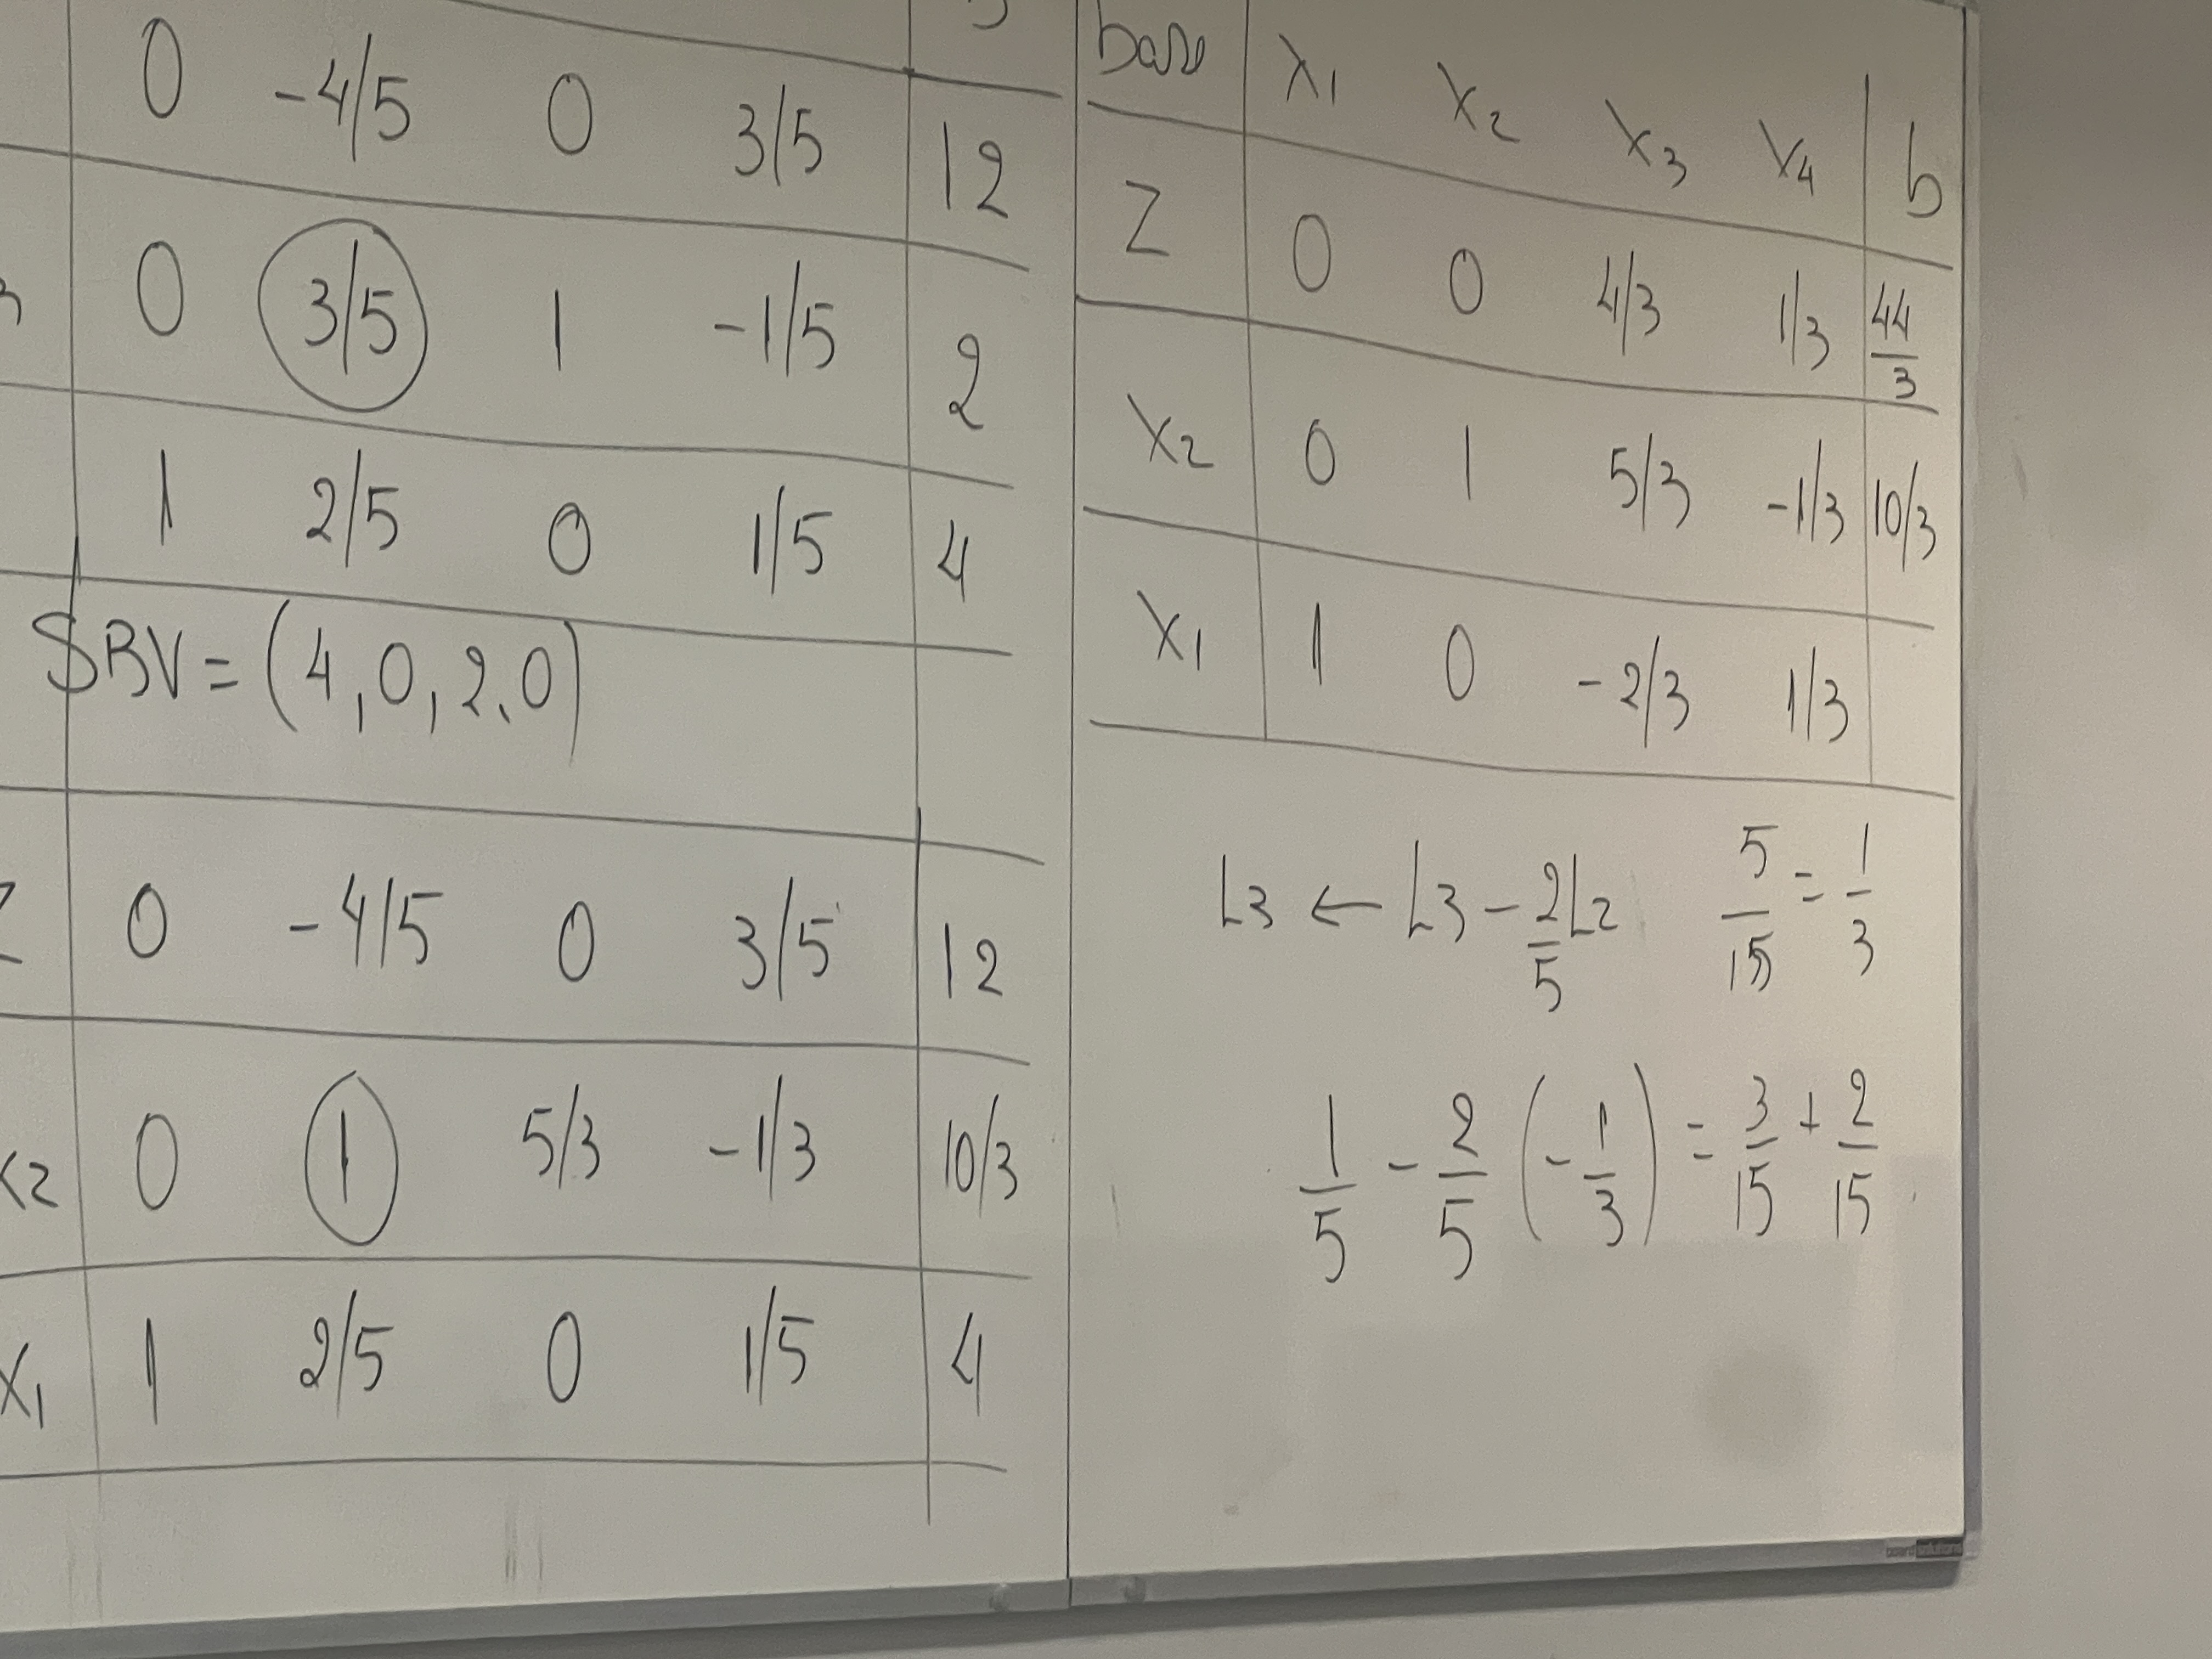 0 -4/5 0 3/5 12
0 3/5 1 -1/5 2
1 2/5 0 1/5 4
SBV = (4, 0, 2, 0)
Z 0 -4/5 0 3/5 12
X2 0 1 5/3 -1/3 10/3
X1 1 2/5 0 1/5 4
base X1 X2 X3 X4 b
Z 0 0 4/3 1/3 44/3
X2 0 1 5/3 -1/3 10/3
X1 1 0 -2/3 1/3
L3 ← L3 - 2/5 L2 5/15 = 1/3
1/5 - 2/5 (-1/3) = 3/15 + 2/15